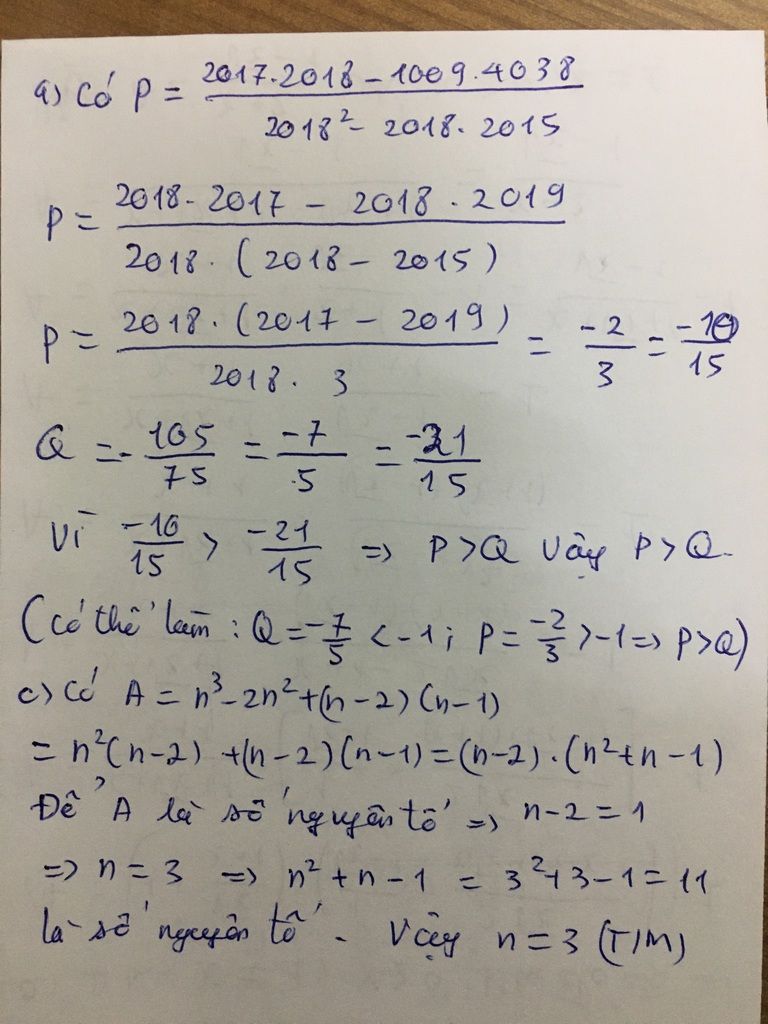 a) Có P = \frac{2017.2018 - 1009.4038}{2018^2 - 2018.2015}
P = \frac{2018.2017 - 2018.2019}{2018.(2018 - 2015)}
P = \frac{2018.(2017 - 2019)}{2018.3} = \frac{-2}{3} = \frac{-10}{15}
Q = -\frac{105}{75} = \frac{-7}{5} = \frac{-21}{15}
Vì \frac{-10}{15} > \frac{-21}{15} => P > Q Vậy P > Q.
(Có thể làm : Q = -\frac{7}{5} < -1 ; P = \frac{-2}{3} > -1 => P > Q)
c) Có A = n^3 - 2n^2 + (n-2)(n-1)
= n^2(n-2) + (n-2)(n-1) = (n-2).(n^2+n-1)
Để A là số nguyên tố => n-2 = 1
=> n = 3 => n^2+n-1 = 3^2+3-1 = 11
là số nguyên tố. Vậy n = 3 (T/M)